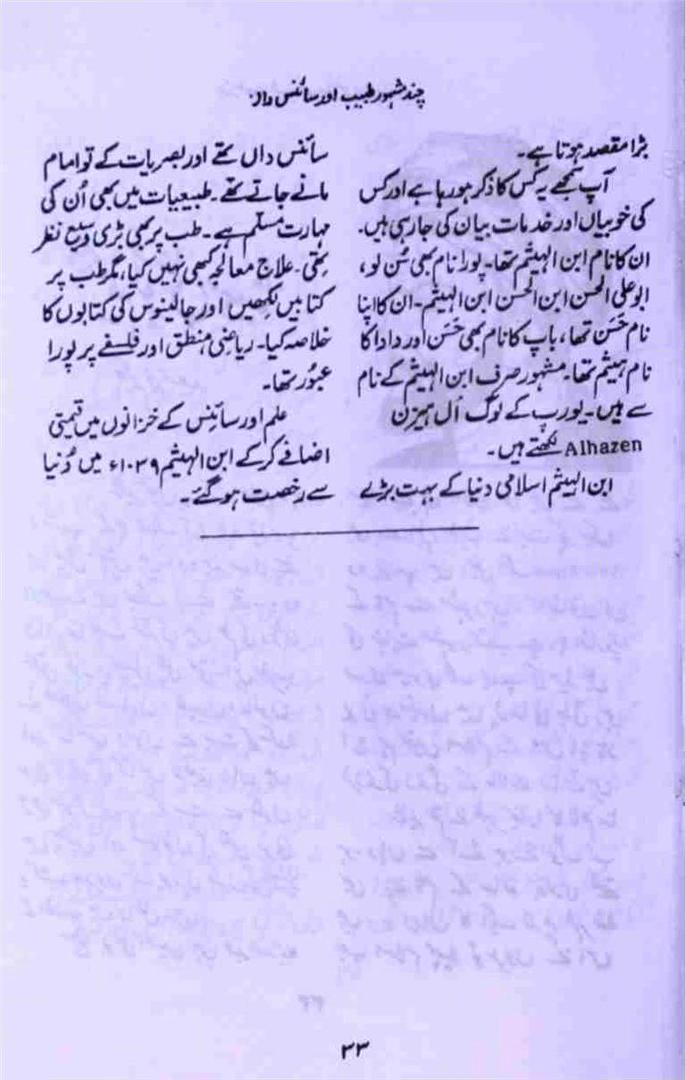 چند مشہور طبیب اور سائنس داں
بڑا مقصد ہوتا ہے۔
آپ سمجھے یہ کس کا ذکر ہو رہا ہے اور کس
کی خوبیاں اور خدمات بیان کی جا رہی ہیں۔
ان کا نام ابن الہیثم تھا۔ پورا نام بھی سُن لو،
ابو علی الحسن ابن الحسن ابن الہیثم۔ ان کا اپنا
نام حَسَن تھا، باپ کا نام بھی حَسَن اور دادا کا
نام ہیثم تھا۔ مشہور صرف ابن الہیثم کے نام
سے ہیں۔ یورپ کے لوگ اَل ہیزن
Alhazen لکھتے ہیں۔
ابن الہیثم اسلامی دنیا کے بہت بڑے
سائنس داں تھے اور بصریات کے تو امام
مانے جاتے تھے۔ طبیعیات میں بھی اُن کی
مہارت مسلّم ہے۔ طب پر بھی بڑی وسیع نظر
تھی۔ علاج معالجہ کبھی نہیں کیا، مگر طب پر
کتابیں لکھیں اور جالینوس کی کتابوں کا
خلاصہ کیا۔ ریاضی، منطق اور فلسفے پر پورا
عبُور تھا۔
علم اور سائنس کے خزانوں میں قیمتی
اضافے کر کے ابن الہیثم ۱۰۳۹ء میں دُنیا
سے رخصت ہو گئے۔
۳۳